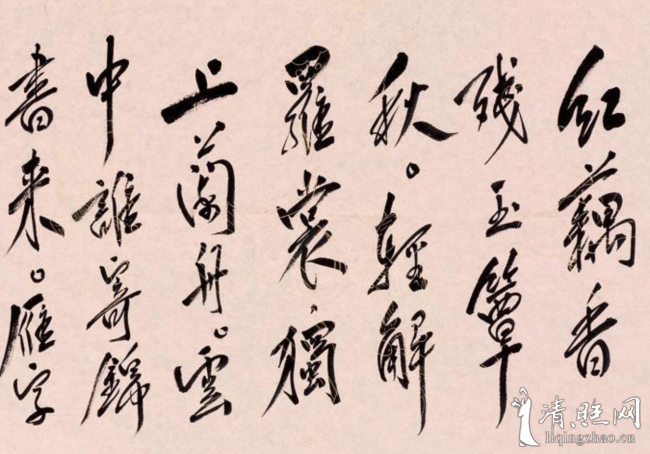 红藕香
残玉簟
秋。輕解
羅裳獨
上蘭舟。雲
中誰寄錦
書来。雁字
清照网
liqingzhao.com